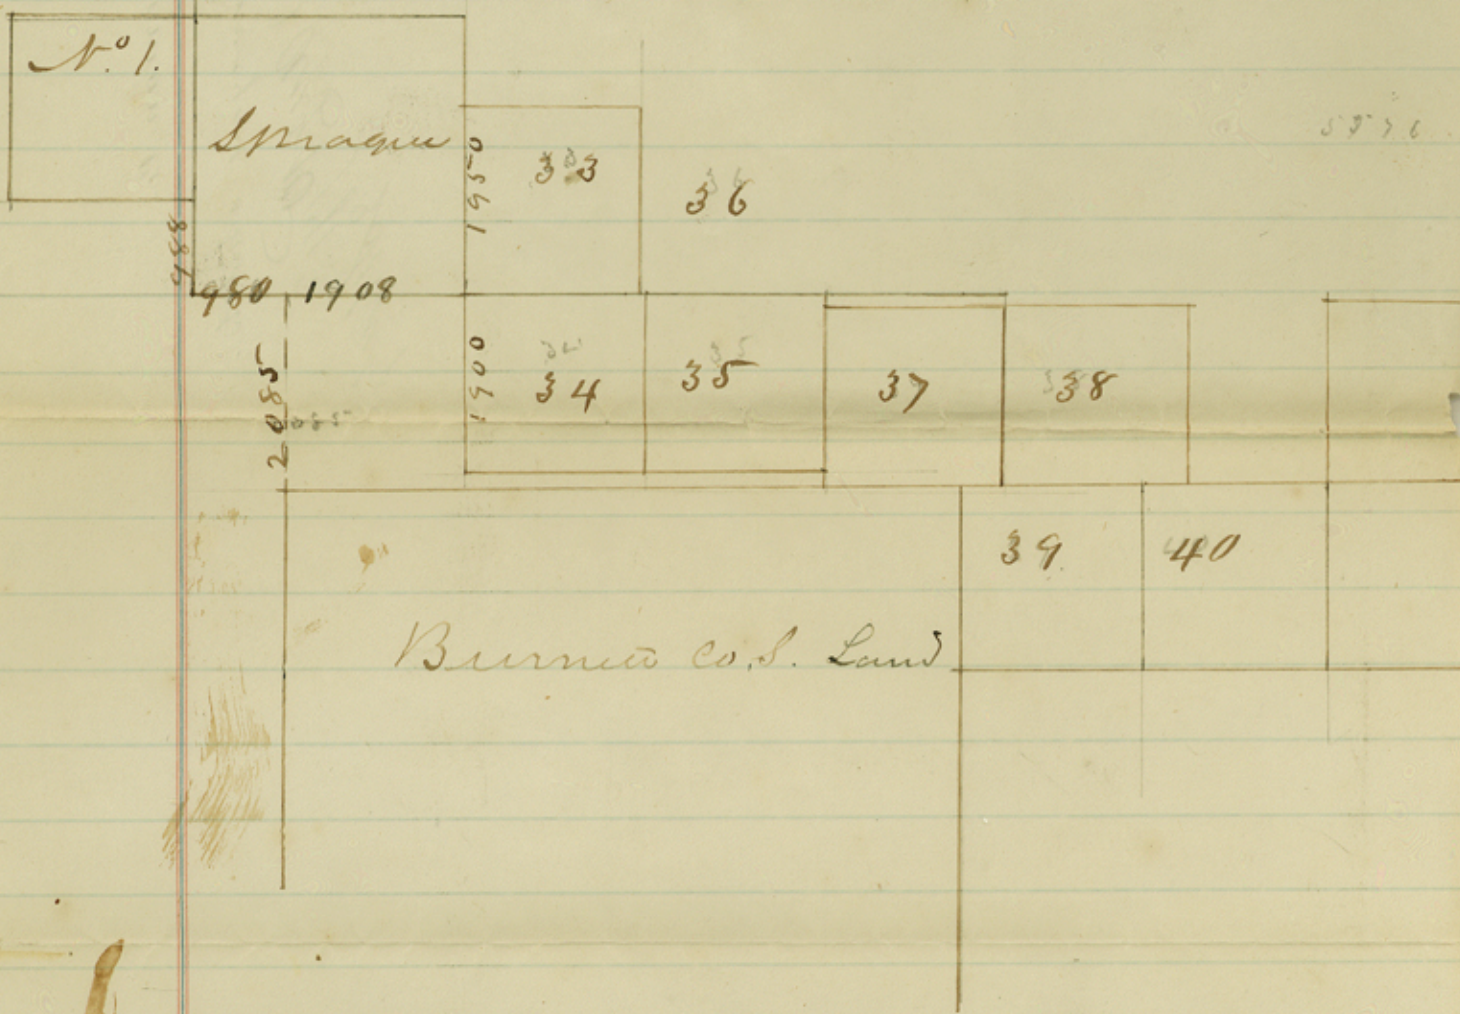 No 1.
Sprague
1950
33
36
988
980 1908
2085
1900
34
35
37
38
39
40
Burnett Co. S. Land